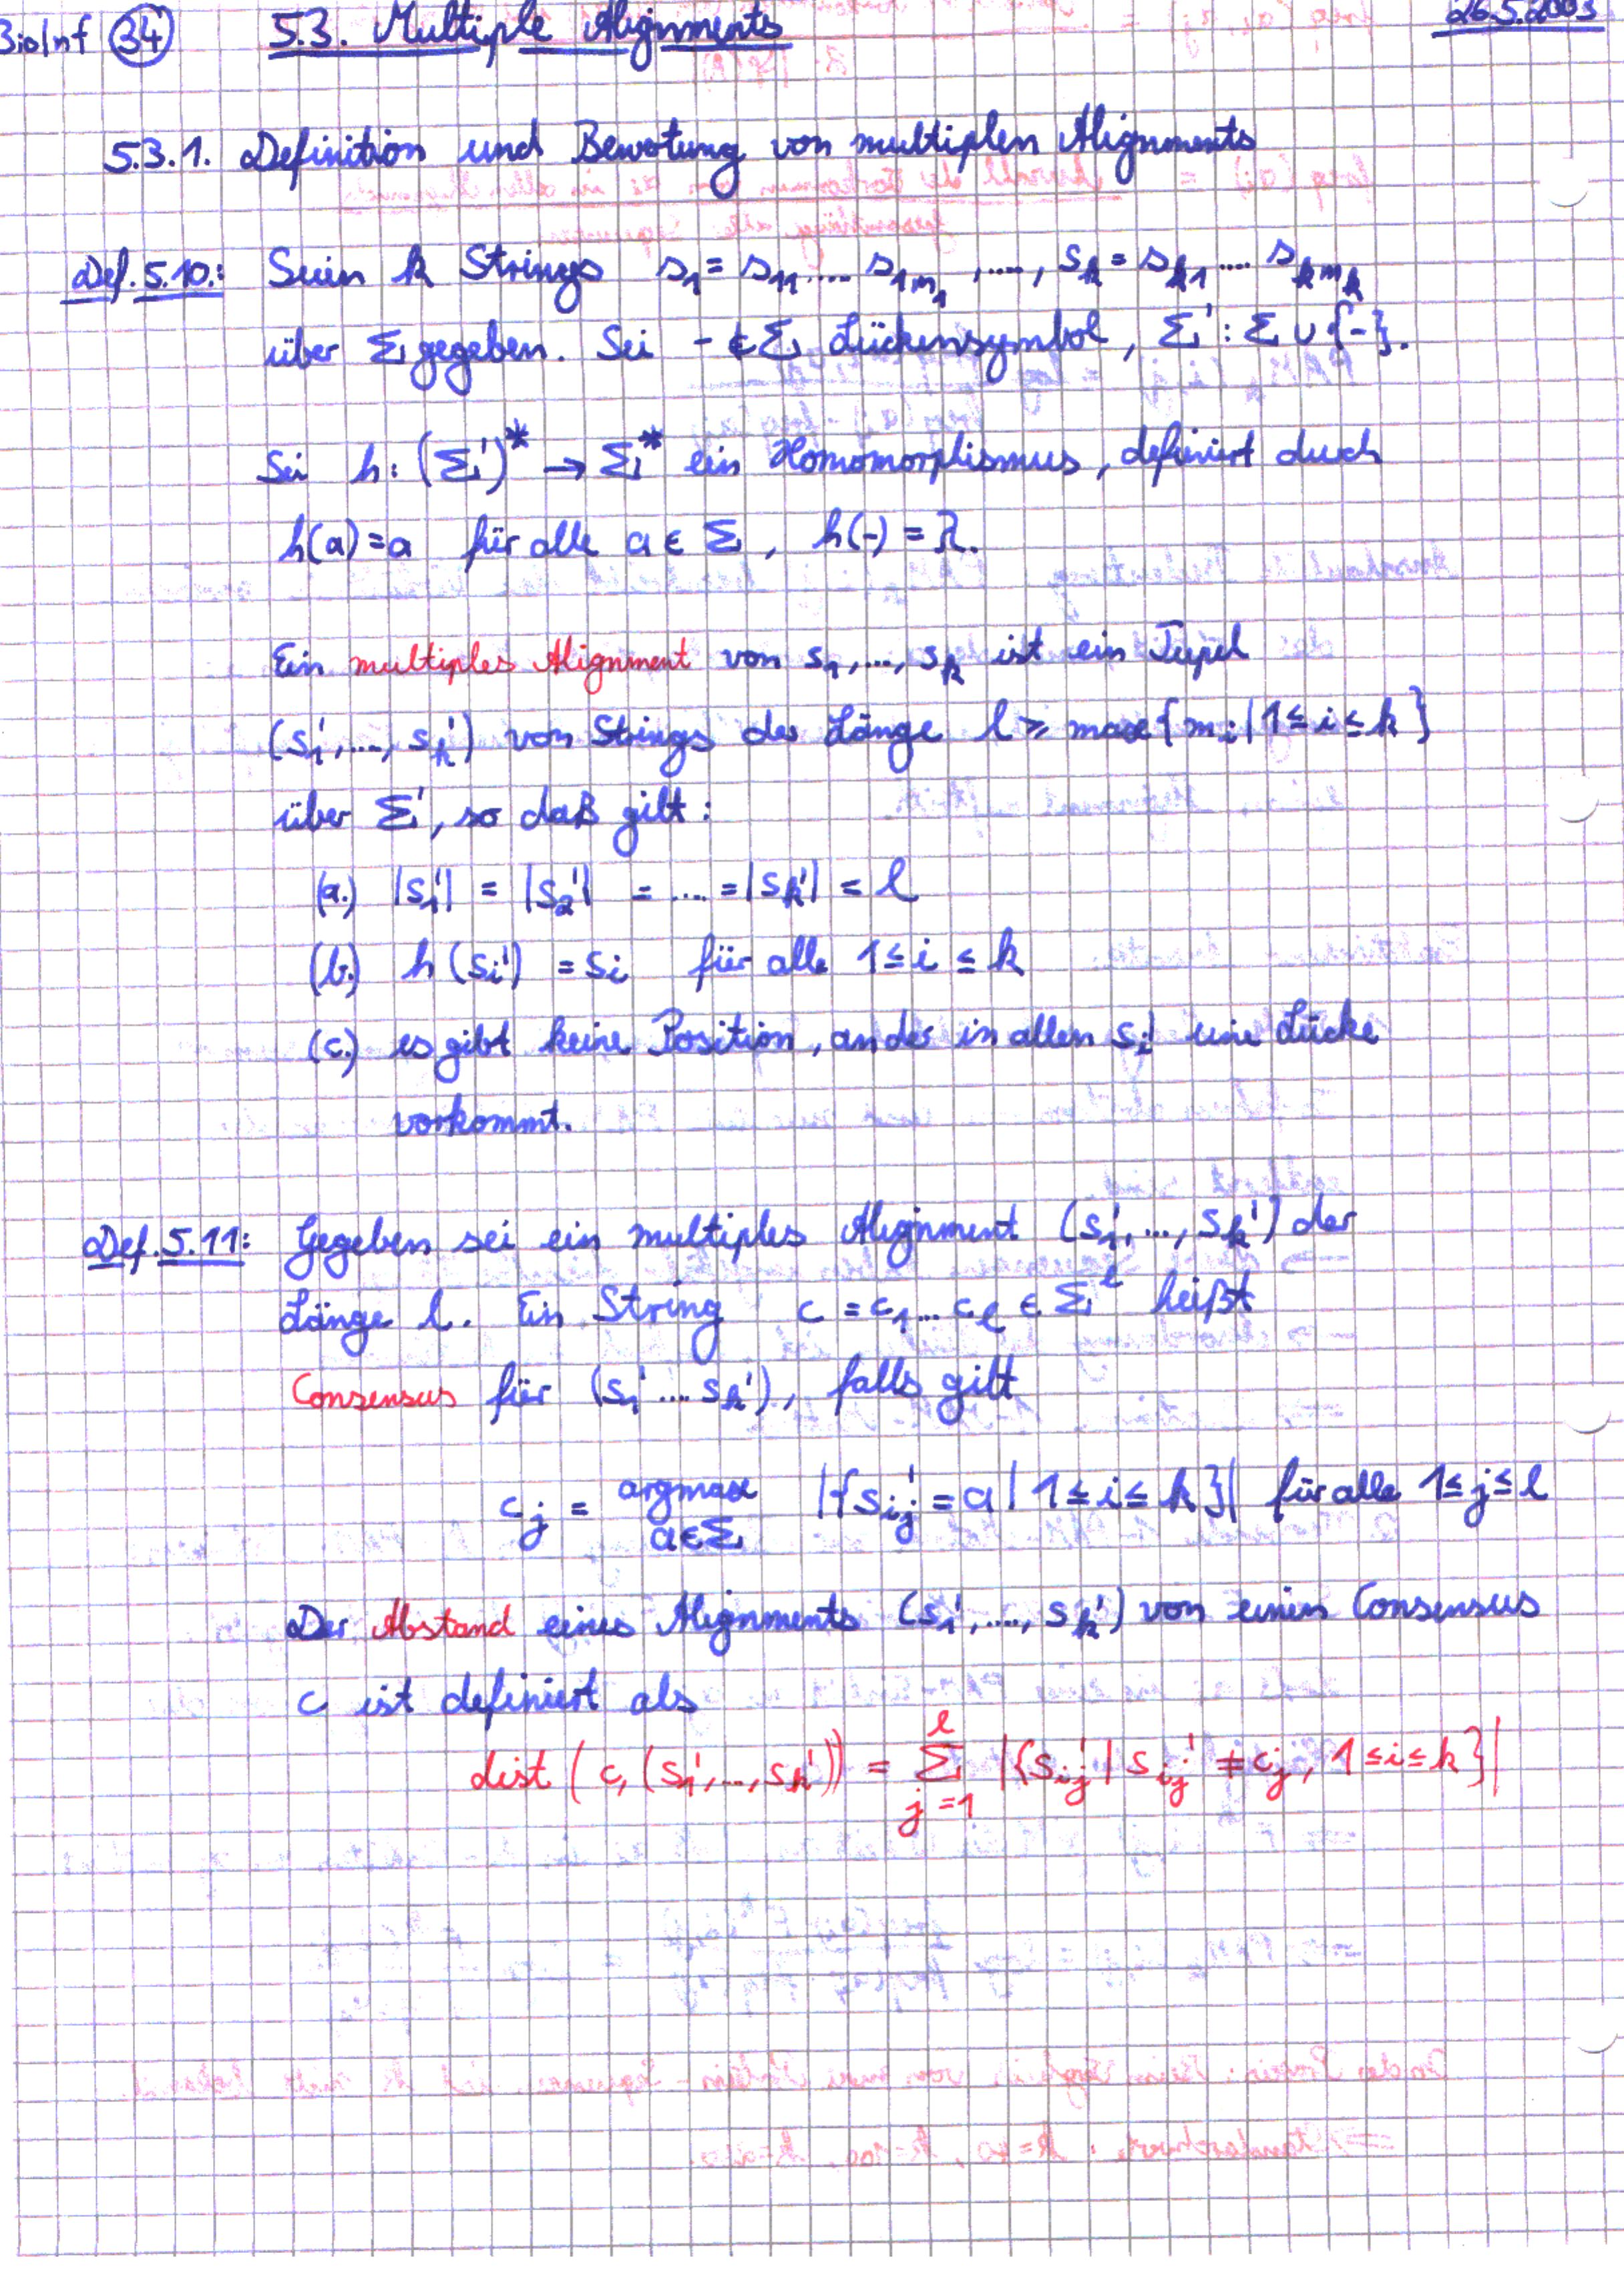 BioInf 34 5.3. Multiple Alignments 26.5.2003
5.3.1. Definition und Bewertung von multiplen Alignments
Def. 5.10: Seien k Strings s₁ = s₁₁ .... s₁ₘ₁ , ...., sₖ = sₖ₁ .... sₖₘₖ
über Σ gegeben. Sei - ∉ Σ Lückensymbol, Σ' : Σ ∪ {-}.
Sei h: (Σ')* → Σ* ein Homomorphismus, definiert durch
h(a) = a für alle a ∈ Σ, h(-) = λ.
Ein multiples Alignment von s₁, ..., sₖ ist ein Tupel
(s₁', ..., sₖ') von Strings der Länge l ≥ max{mᵢ | 1 ≤ i ≤ k}
über Σ', so daß gilt:
(a.) |s₁'| = |s₂'| = .... = |sₖ'| = l
(b.) h(sᵢ') = sᵢ für alle 1 ≤ i ≤ k
(c.) es gibt keine Position, an der in allen sᵢ' eine Lücke
vorkommt.
Def. 5.11: Gegeben sei ein multiples Alignment (s₁', ..., sₖ') der
Länge l. Ein String c = c₁ ... cₗ ∈ Σˡ heißt
Consensus für (s₁' ... sₖ'), falls gilt
cⱼ = argmax |{sᵢⱼ' = a | 1 ≤ i ≤ k}| für alle 1 ≤ j ≤ l
a ∈ Σ
Der Abstand eines Alignments (s₁', ...., sₖ') von einem Consensus
c ist definiert als
dist (c, (s₁', ..., sₖ')) = Σⱼ₌₁ˡ |{sᵢⱼ' | sᵢⱼ' ≠ cⱼ, 1 ≤ i ≤ k}|